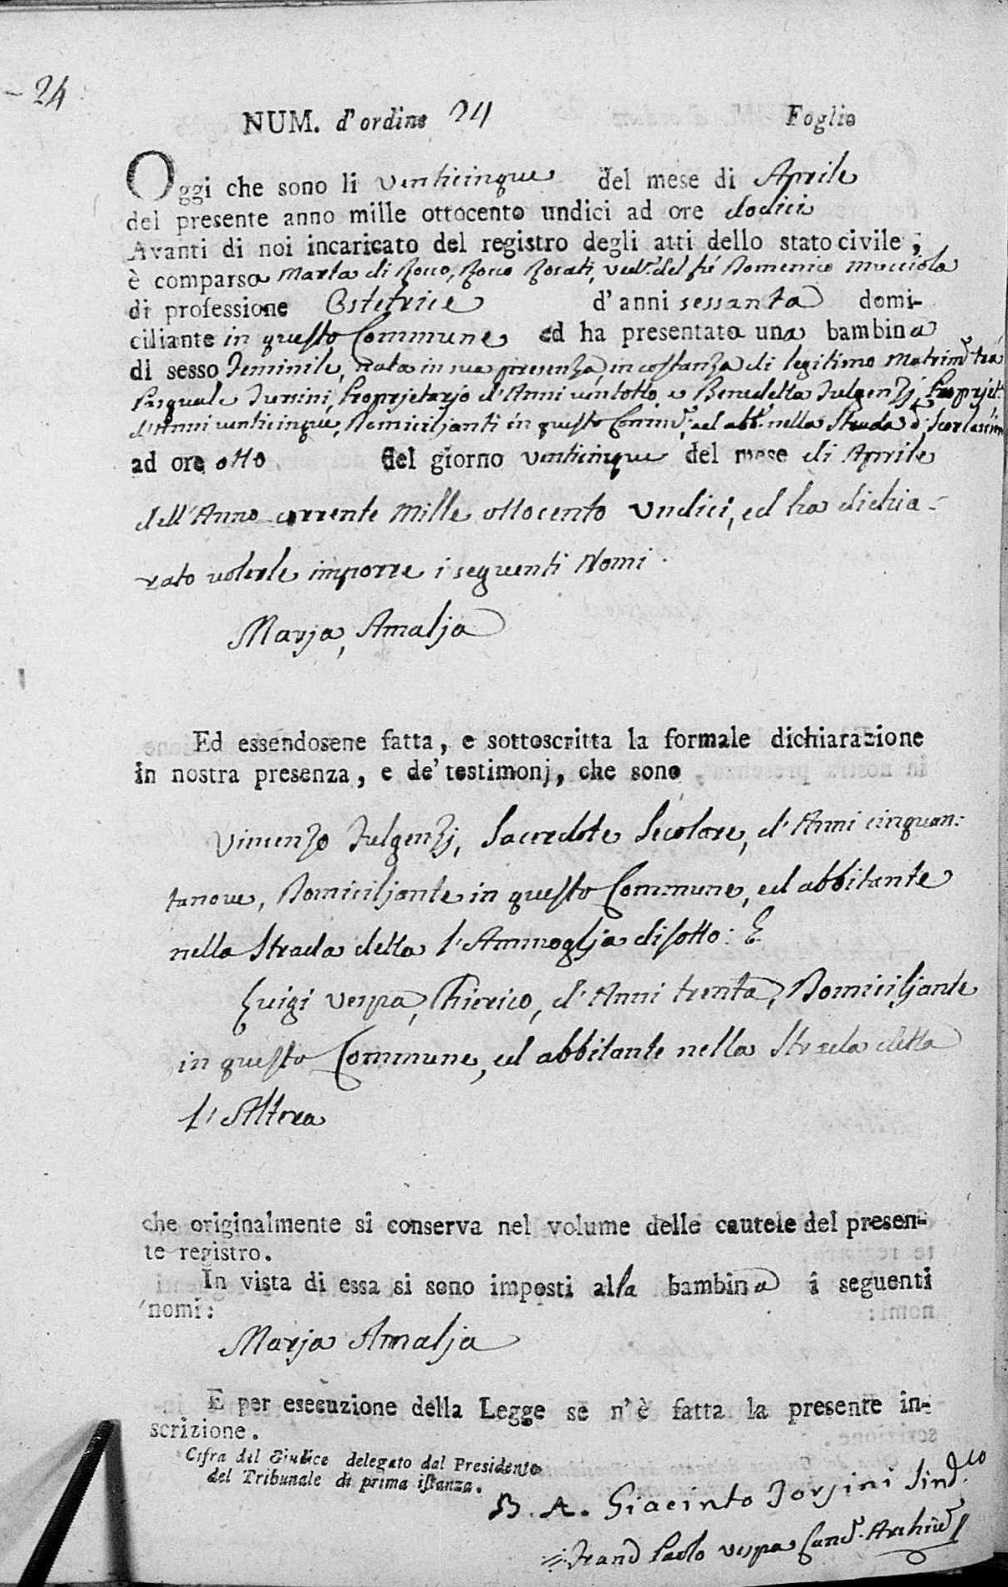 - 24
NUM. d'ordine 24 Foglio
Oggi che sono li venticinque del mese di Aprile
del presente anno mille ottocento undici ad ore dodici
Avanti di noi incaricato del registro degli atti dello stato civile;
è comparsa Marta di Rocco, Rocco Rosati, ved: del fù Domenico Mucciola
di professione Ostetrice d'anni sessanta domi-
ciliante in questo Commune ed ha presentato una bambina
di sesso Feminile, nata in sua presenza, in costanza di legitimo Matrim: trà
Pasquale Turrini, Proprietarjo d'Anni ventotto, e Benedetta Fulgenzj, Propriet:
d'Anni venticinque, Domiciljanti in questo Commu: ed abb: nella Strada di
ad ore otto del giorno venticinque del mese di Aprile
dell'Anno corrente Mille ottocento Undici, ed ha dichia-
rato volerle imporre i seguenti Nomi.
Marja, Amalja
Ed essendosene fatta, e sottoscritta la formale dichiarazione
in nostra presenza, e de' testimonj, che sono
Vincenzo Fulgenzj, Sacerdote Secolare, d'Anni cinquan:
tanove, Domiciljante in questo Commune, ed abbitante
nella Strada detta l'Ammoglja di sotto: E
Luigi Vespa, Chierico, d'Anni trenta, Domiciljante
in questo Commune, ed abbitante nella Strada detta
l'Altrea
che originalmente si conserva nel volume delle cautele del presen-
te registro.
In vista di essa si sono imposti alla bambina i seguenti
nomi:
Marja Amalja
E per esecuzione della Legge se n'è fatta la presente in-
scrizione.
Cifra del Giudice delegato dal Presidente
del Tribunale di prima istanza.
B. A. Giacinto Torsini Sind.co
Franc Paolo Vespa Canc: Archiv: